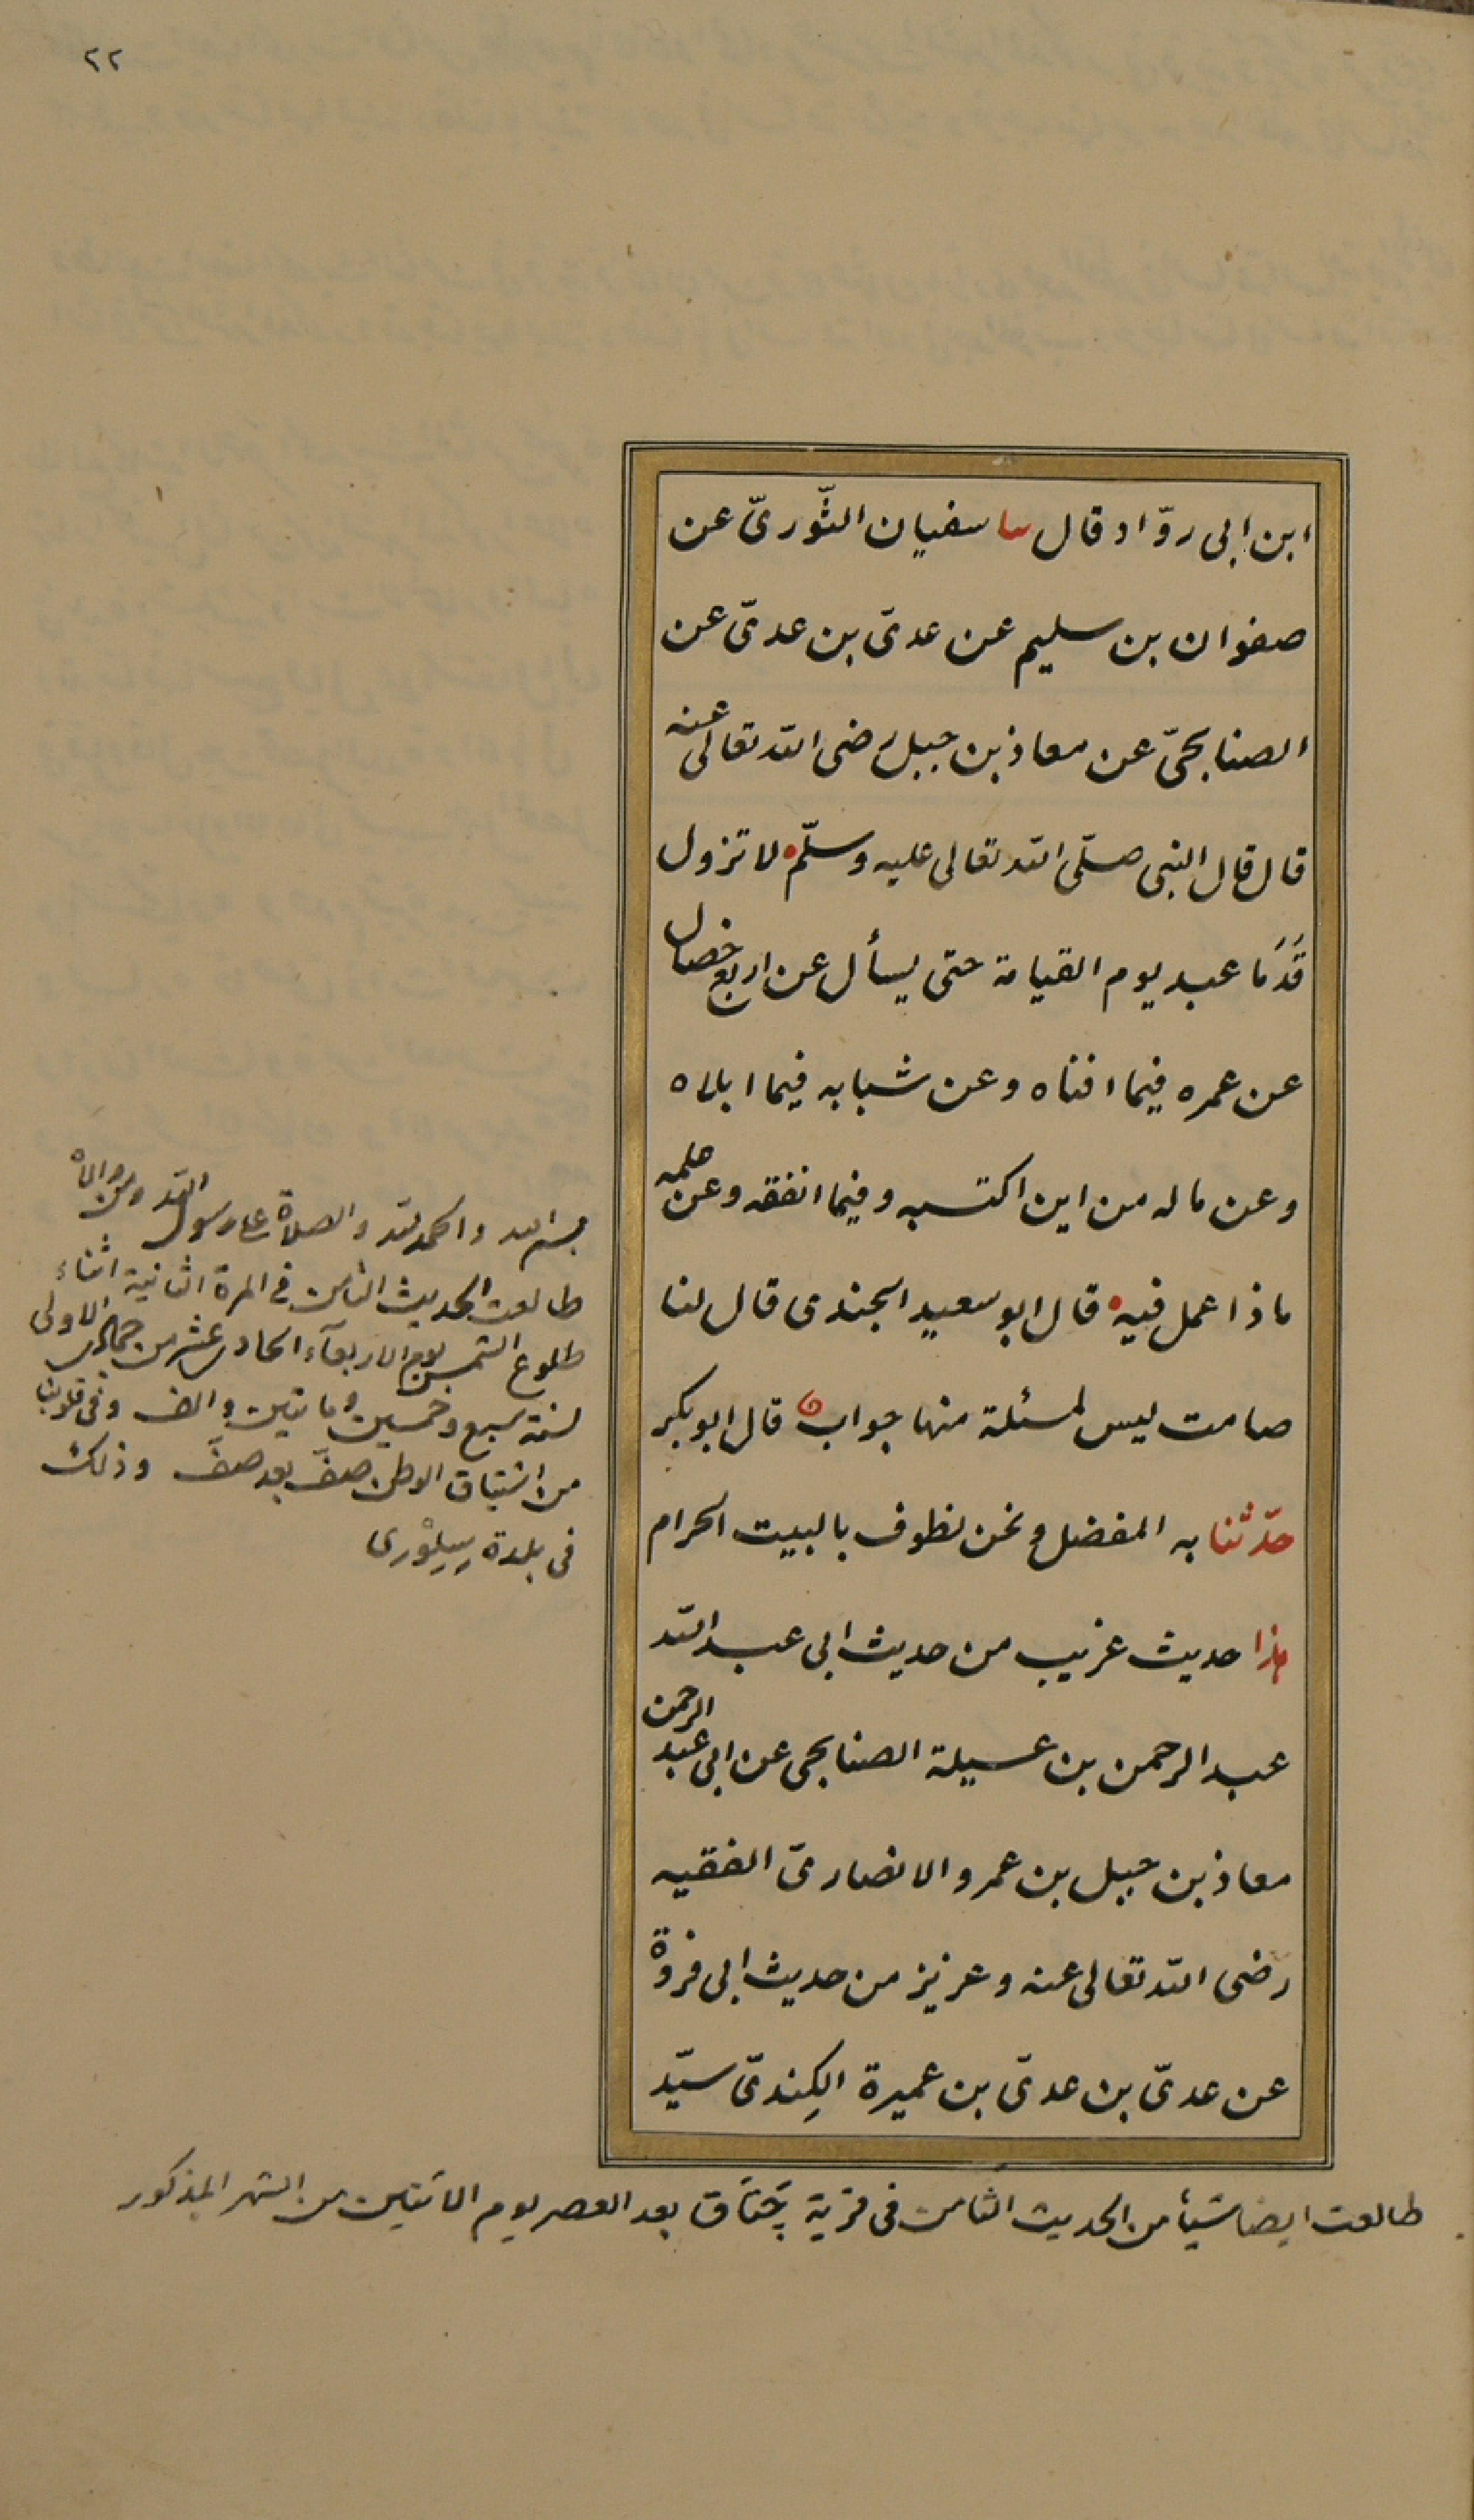 ٢٢
ابن ابى روّاد قال نا سفيان الثّورىّ عن
صفوان بن سليم عن عدىّ بن عدىّ عن
الصنابحىّ عن معاذ بن جبل رضى الله تعالى عنه
قال قال النبى صلّى الله تعالى عليه وسلّم لا تزول
قَدَمَا عبد يوم القيامة حتى يسأل عن اربع خصال
عن عمره فيما افناه وعن شبابه فيما ابلاه
وعن ماله من اين اكتسبه وفيما انفقه وعن علمه
ماذا عمل فيه قال ابو سعيد الجندى قال لنا
صامت ليس لمسئلة منها جواب قال ابو بكر
حدّثنا به المفضل ونحن نطوف بالبيت الحرام
هذا حديث غريب من حديث ابى عبد الله
عبد الرحمن بن عسيلة الصنابحى عن ابى عبد الرحمن
معاذ بن جبل بن عمرو الانصارىّ الفقيه
رضى الله تعالى عنه وعزيز من حديث ابى فروة
عن عدىّ بن عدىّ بن عميرة الكِندىّ سيّد
بسم الله والحمد لله والصلاة على رسول الله ومن والاه
طالعت الحديث الثامن فى المرة الثانية اثناء
طلوع الشمس يوم الاربعآء الحادى عشر من جمادى الاولى
لسنة سبع وخمسين ومائتين والف وفى قلوبنا
من اشتياق الوطن صفّ بعد صفّ وذلك
فى بلدة سِيلِوْرى
طالعت ايضا شيأ من الحديث الثامن فى قرية چَتَاق بعد العصر يوم الاثنين من الشهر المذكور